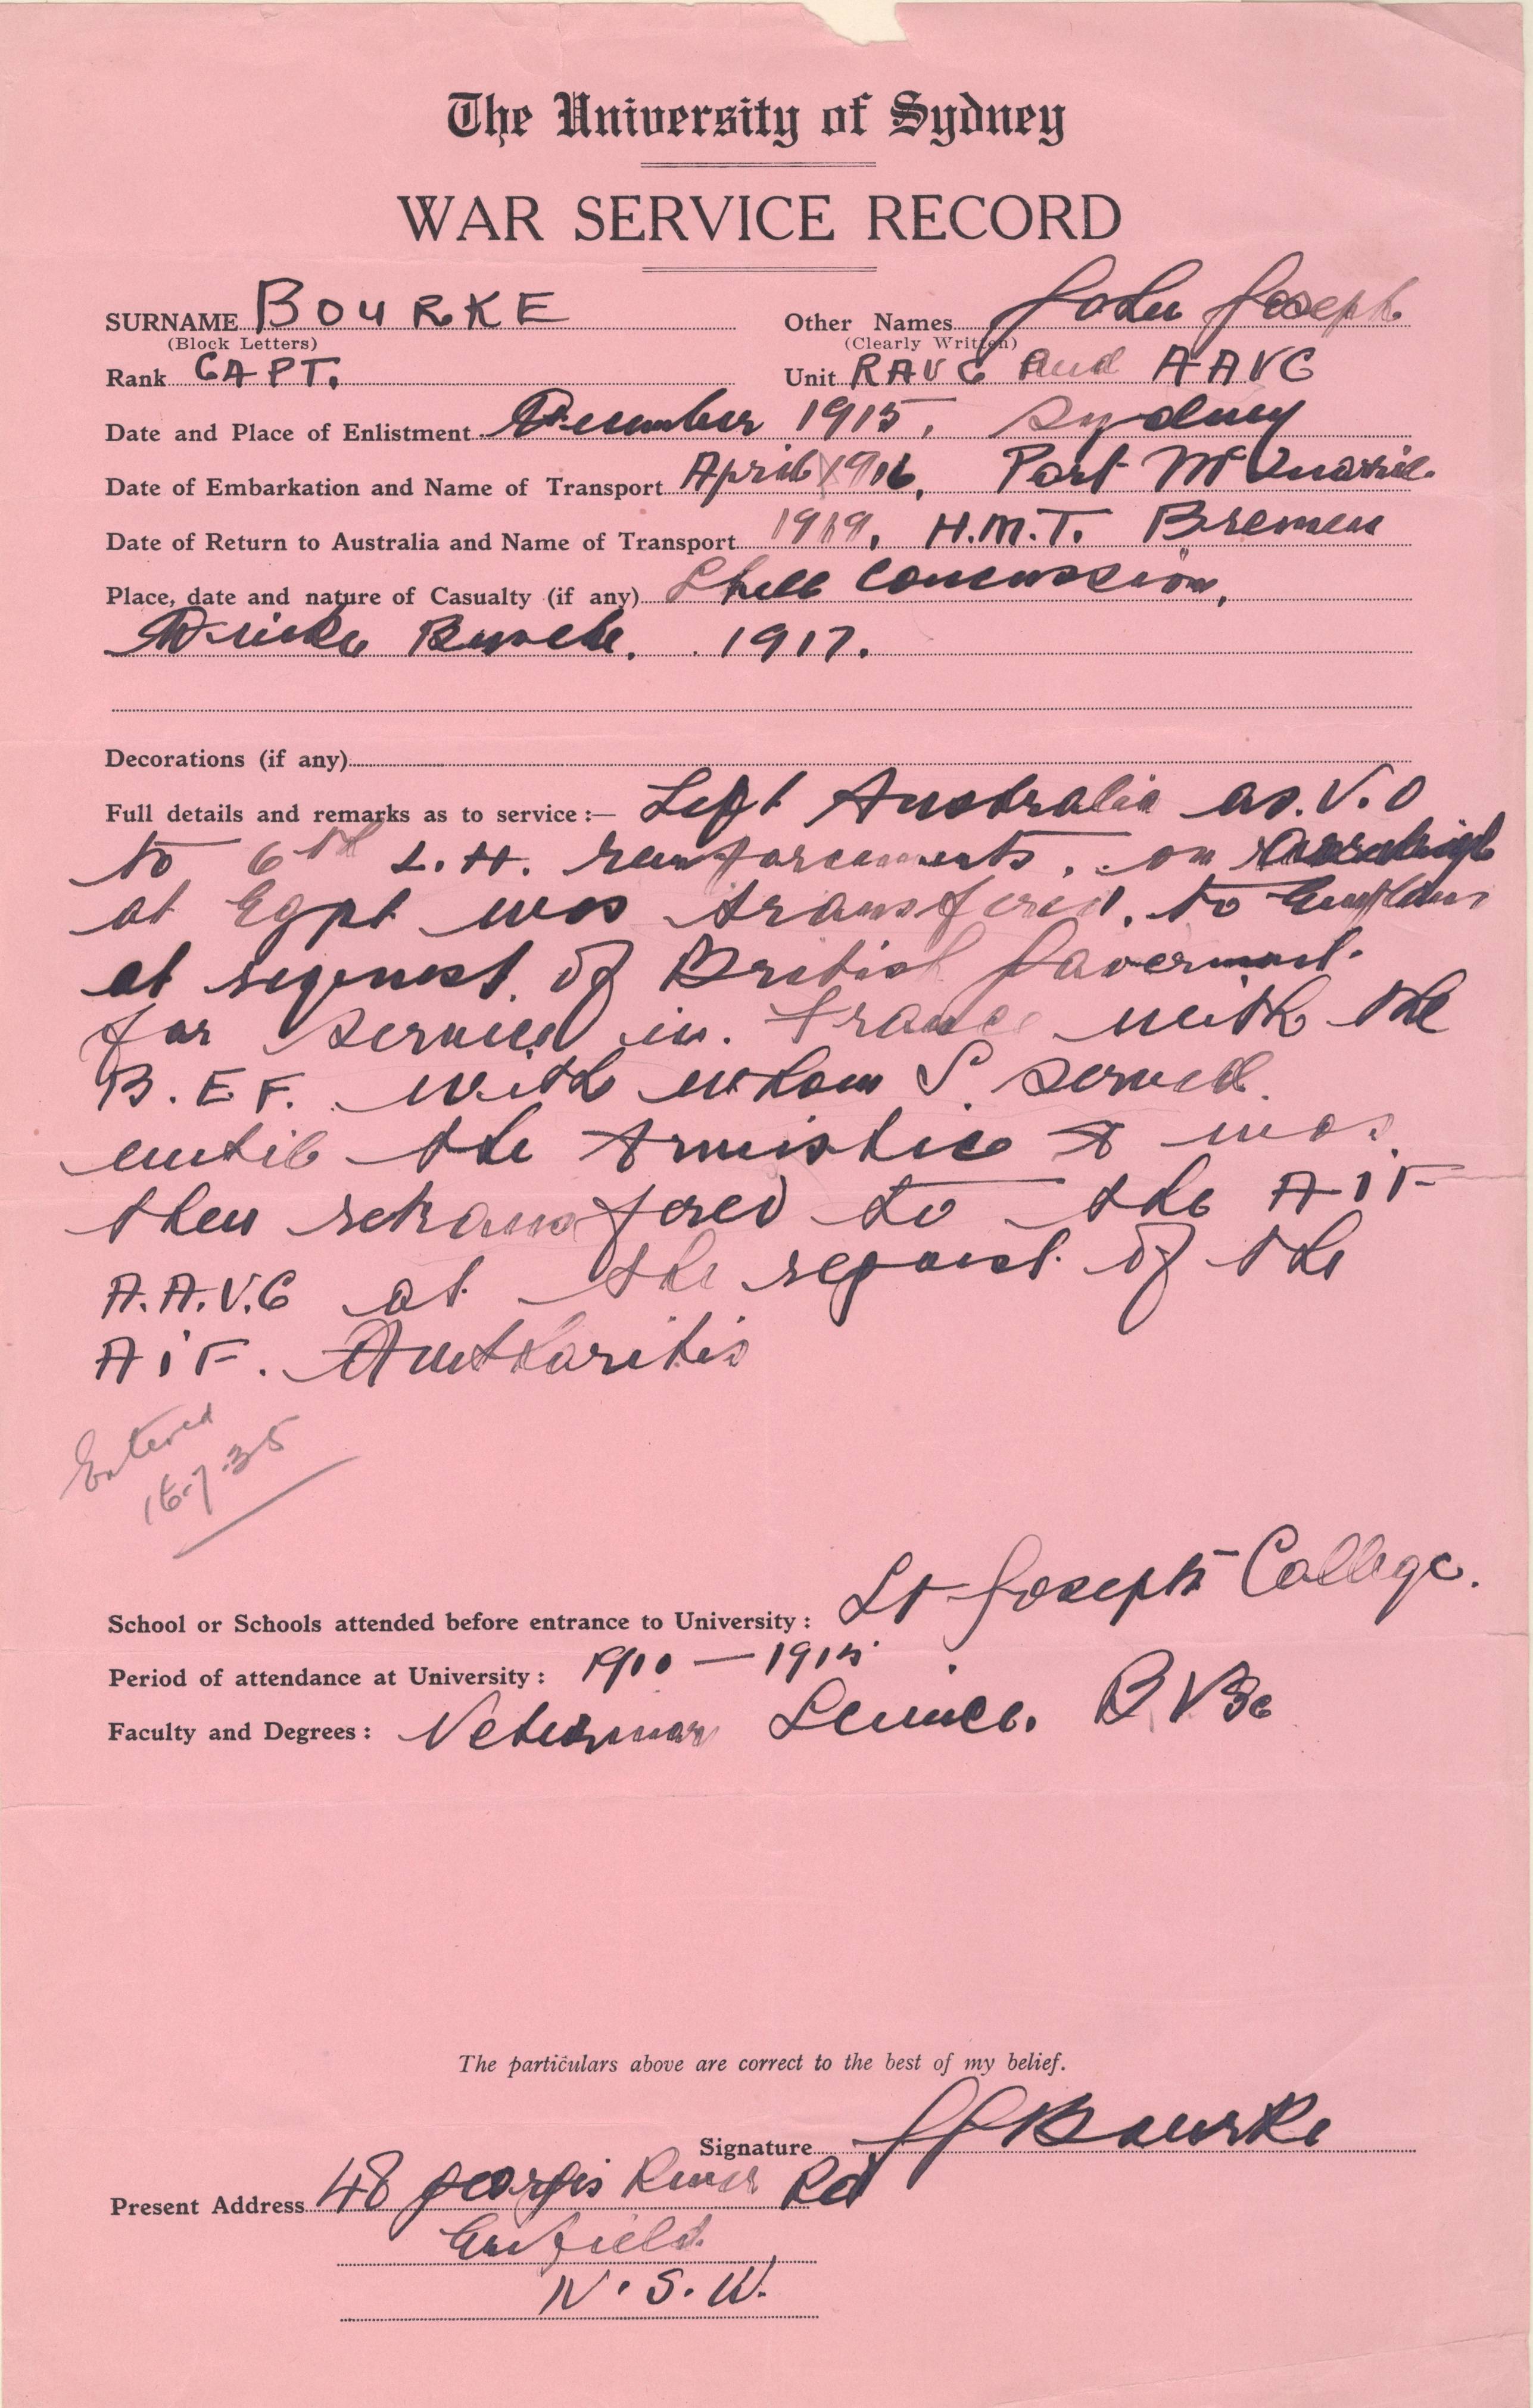 The University of Sydney
WAR SERVICE RECORD
SURNAME BOURKE Other Names John Joseph
(Block Letters) (Clearly Written)
Rank CAPT. Unit RAVC and AAVC
Date and Place of Enlistment December 1915, Sydney
Date of Embarkation and Name of Transport April 1916, Port
Date of Return to Australia and Name of Transport 1919. H.M.T. Bremen
Place, date and nature of Casualty (if any) Shell Concussion,
1917.
Decorations (if any)
Full details and remarks as to service:— Left Australia as V.O
to 6th L.H. reinforcements. on
at Egpt was transfered. to
at request of British Goverment.
for service in. France with the
B.E.F. with whom I served
until the Armistice & was
then retransfered to the AIF
A.A.V.C at the request of the
AIF. Authoritis
Entered
16.7.35
School or Schools attended before entrance to University: St Joseph's College.
Period of attendance at University: 1910 — 1915
Faculty and Degrees: Science. BVSc
The particulars above are correct to the best of my belief.
Signature JJ Bourke
Present Address 48 georges River Rd
Enfield
N.S.W.